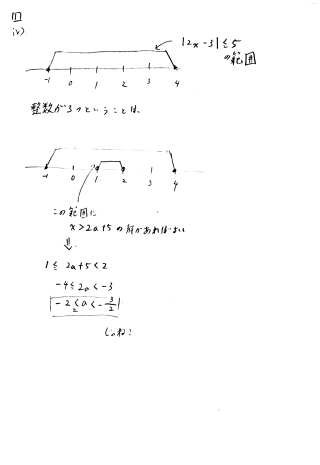 1
iv)
|2x-3|≦5
の範囲
-1 0 1 2 3 4
整数が3つということは、
-1 0 1 2 3 4
この範囲に
x>2a+5 の解があればよい
⇓
1≦2a+5<2
-4≦2a<-3
-2≦a<-3/2
じゃね?